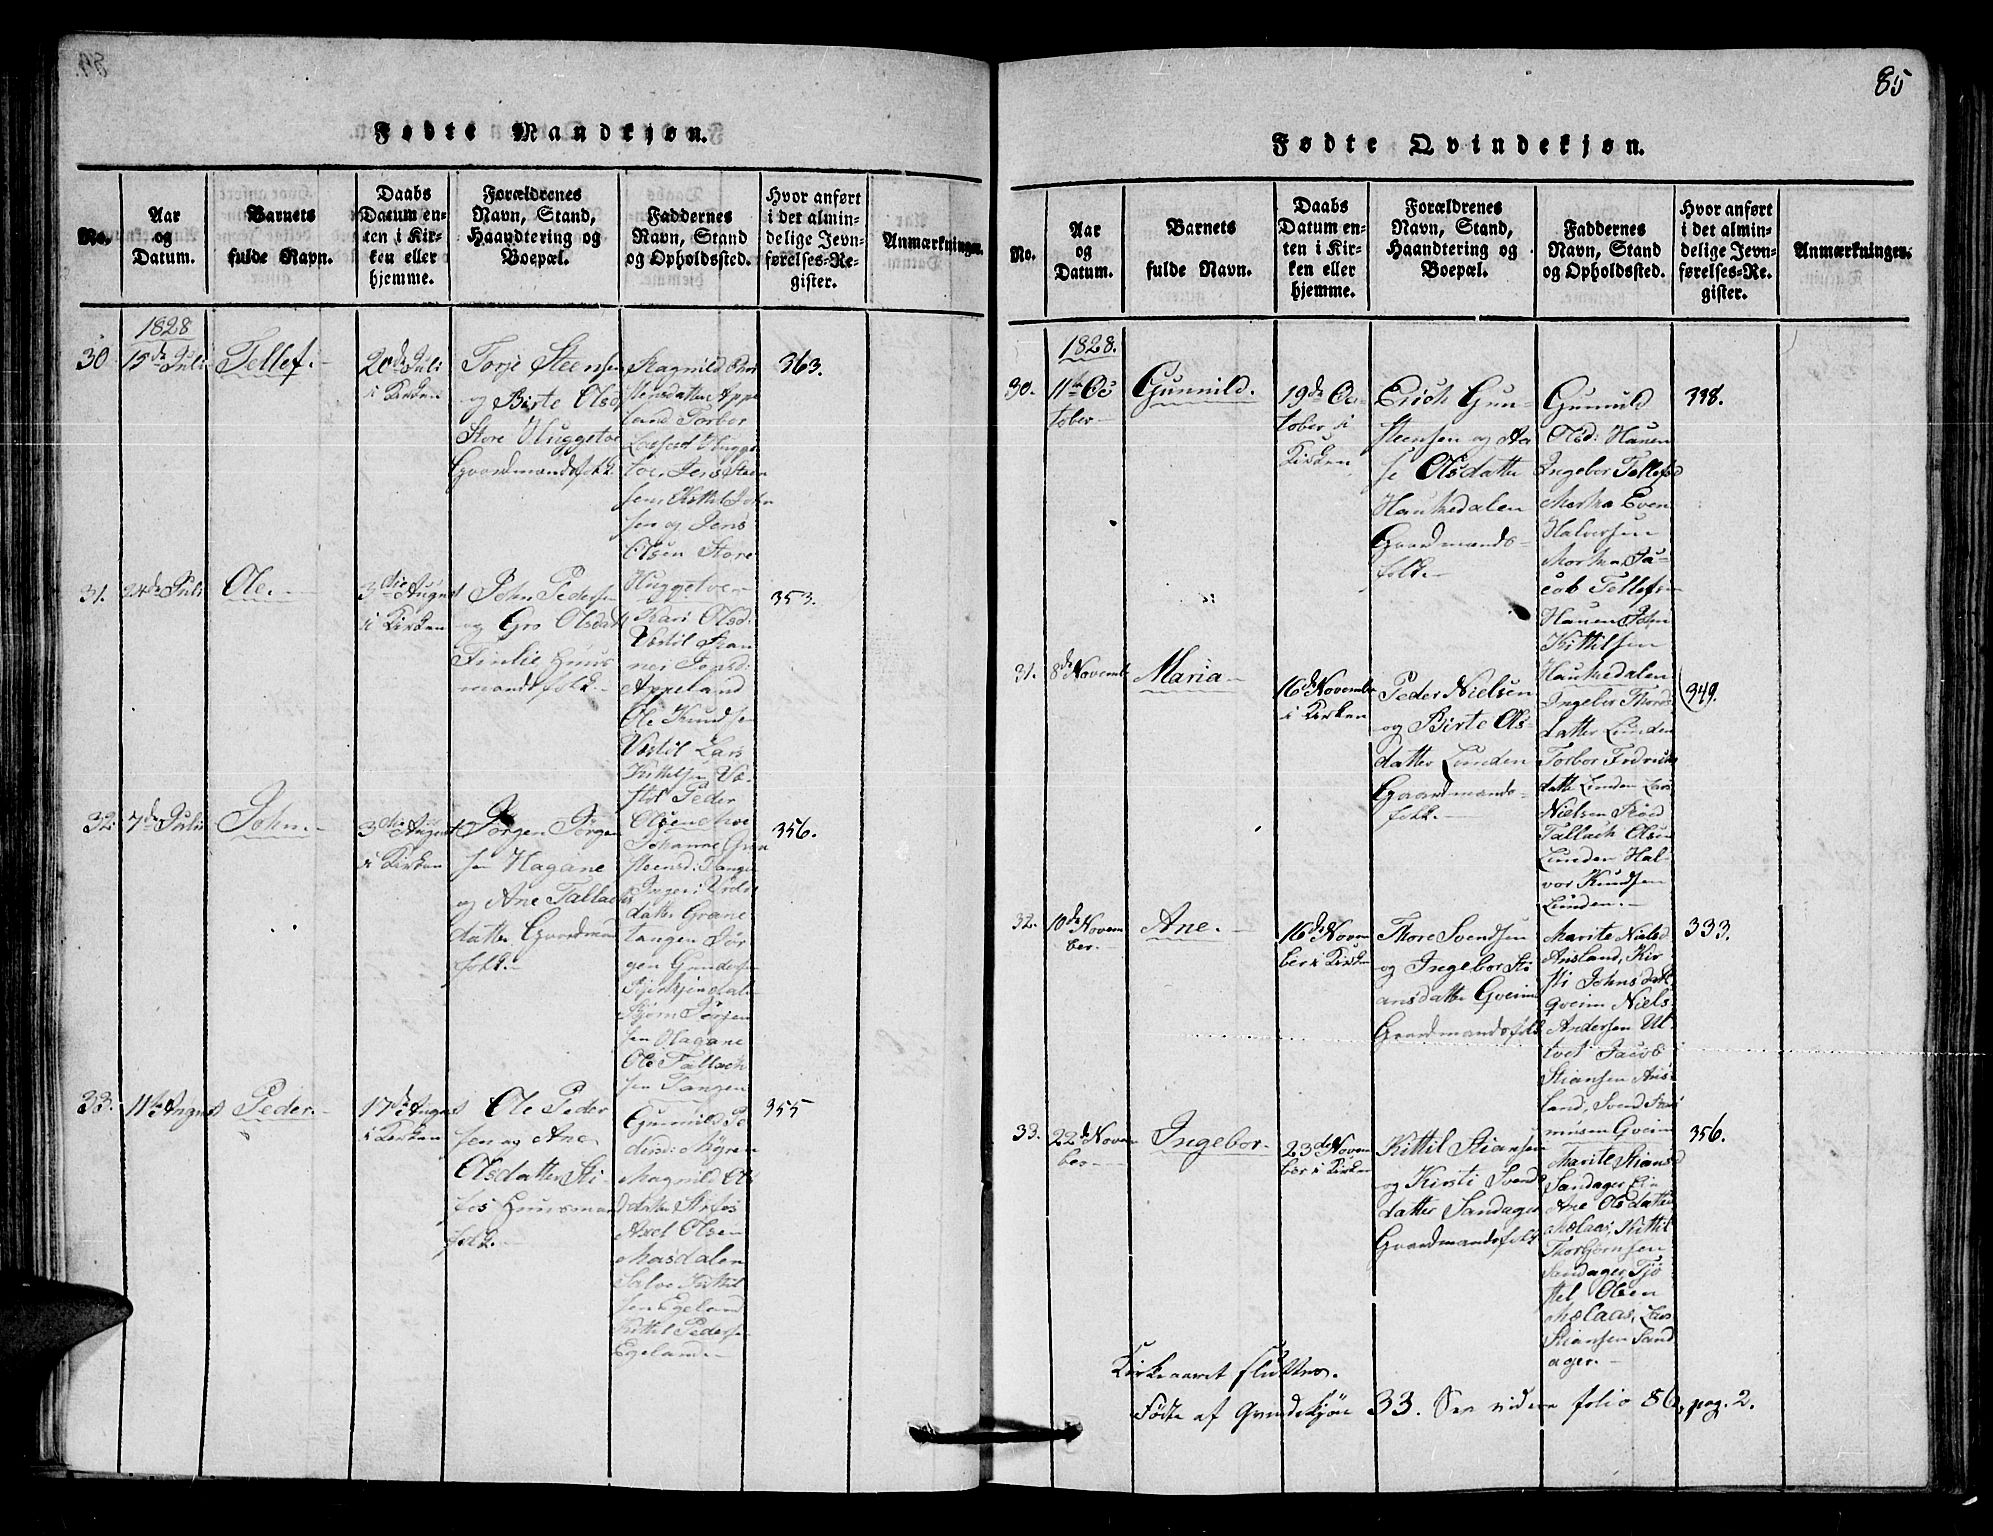 Fødte Mandkjøn.
No.
Aar
og
Datum.
Barnets
fulde Navn.
Daabs
Datum en-
ten i Kir-
ken eller
hjemme.
Forældrenes
Navn, Stand,
Haandtering og
Boepæl.
Faddernes
Navn, Stand
og Opholdssted.
Hvor anført
i det almin-
delige Jevn-
førelses-Re-
gister.
Anmærkninger.
1828
30
15de Juli
Tellef.
20de Juli
i Kirken
Torje Steensen
og Birte Olsd
Store Huggetve
Gaardmandsfolk.
Ragnild
stensdatter Appe
land Torbor
Hugge
toe, Jens Steen
sen, Kittil John
sen og Jens
Olsen Store
Huggetve
363.
31.
24de Juli
Ole.
3die August
i Kirken
John Peders
og Gro Olsdatt
Huus
mandsfolk.
Kari Olsd:
Vestil
Appeland
Ole Knudsen
Vestil Lars
Kittilsen Ve-
stil Peder
Olsen
353.
32.
7de Juli
John.
3die August
i Kirken
Jørgen Jørgen
sen Hagane
og Ane Tallachs
datter Gaardman
folk.
Johanne Gun
steensd: Tangen
Inger
datter Grane
tangen Jør
gen Gunders
Bjørn Jørgen
sen Hagane
Ole Tallach
sen Tangen
356.
33.
11te August
Peder.
17de August
i Kirken
Ole Peder
sen og Ane
Olsdatter Sti-
fos Huusmand
folk.
Gunnild Pe
dersd: Myren
Magnild Ols
datter Stifos
Axel Olsen
Masdalen
Salve Kittil
sen Egeland
Kittil Peders
Egeland.
355
85
Fødte Qvindekjøn.
No.
Aar
og
Datum.
Barnets
fulde Navn.
Daabs
Datum en-
ten i Kir-
ken eller
hjemme.
Forældrenes
Navn, Stand,
Haandtering og
Boepæl.
Faddernes
Navn, Stand
og Opholdssted.
Hvor anført
i det almin-
delige Jevn-
førelses-Re-
gister.
Anmærkninger.
1828.
30.
11te Oc
tober
Gunnild.
19de Oc-
tober i
Kirken
Erich Gun-
steensen og Aa
se Olsdatter
Haukedalen
Gaardmands-
folk.
Gunnild
Olsd: Hauen
Ingebor Tellefsd
Morka Even
Halvorsen
Morka Ja-
cob Tellefs
Hauen John
Kittilsen
Haukedalen
338.
31.
8de Novemb
Maria
16de Novembr
i Kirken
Peder Nielsen
og Birte Ols-
datter Lunden
Gaardmands-
folk.
Ingebor Thores
datter Lunden
Torbor Fredriks
datter Lunden Lars
Nielsen
Tallach Olsen
Lunden Hal-
vor Knudsen
Lunden.
349.
32.
10de Novem
ber.
Ane.
16de Novem
ber i Kirken
Thore Svendsen
og Ingebor Sti
ansdatter Gveim
Gaardmandsfolk
Marite Nielsd
Ausland, Kir
sti Johnsdatt
Gveim Niels
Andersen Ul-
tvet Jacob
Stiansen Aus
land, Svend
Gveim
333.
33.
22de Novem
ber
Ingebor
23de Novem
ber i Kirken
Kittil Stiansen
og Kirsti Svend
datter Sandager
Gaardmandsfolk
Marite Stiansd
Sandager
Ane Olsdatter
Mælaas, Kittil
Thorbjørnsen
Sandager, Tjø-
stel Olsen
Mælaas, Lars
Stiansen Sand
ager.
356.
Kirkeaaret sluttes.
Födte af Qvindekjön 33. See videre folio 86, pag. 2.